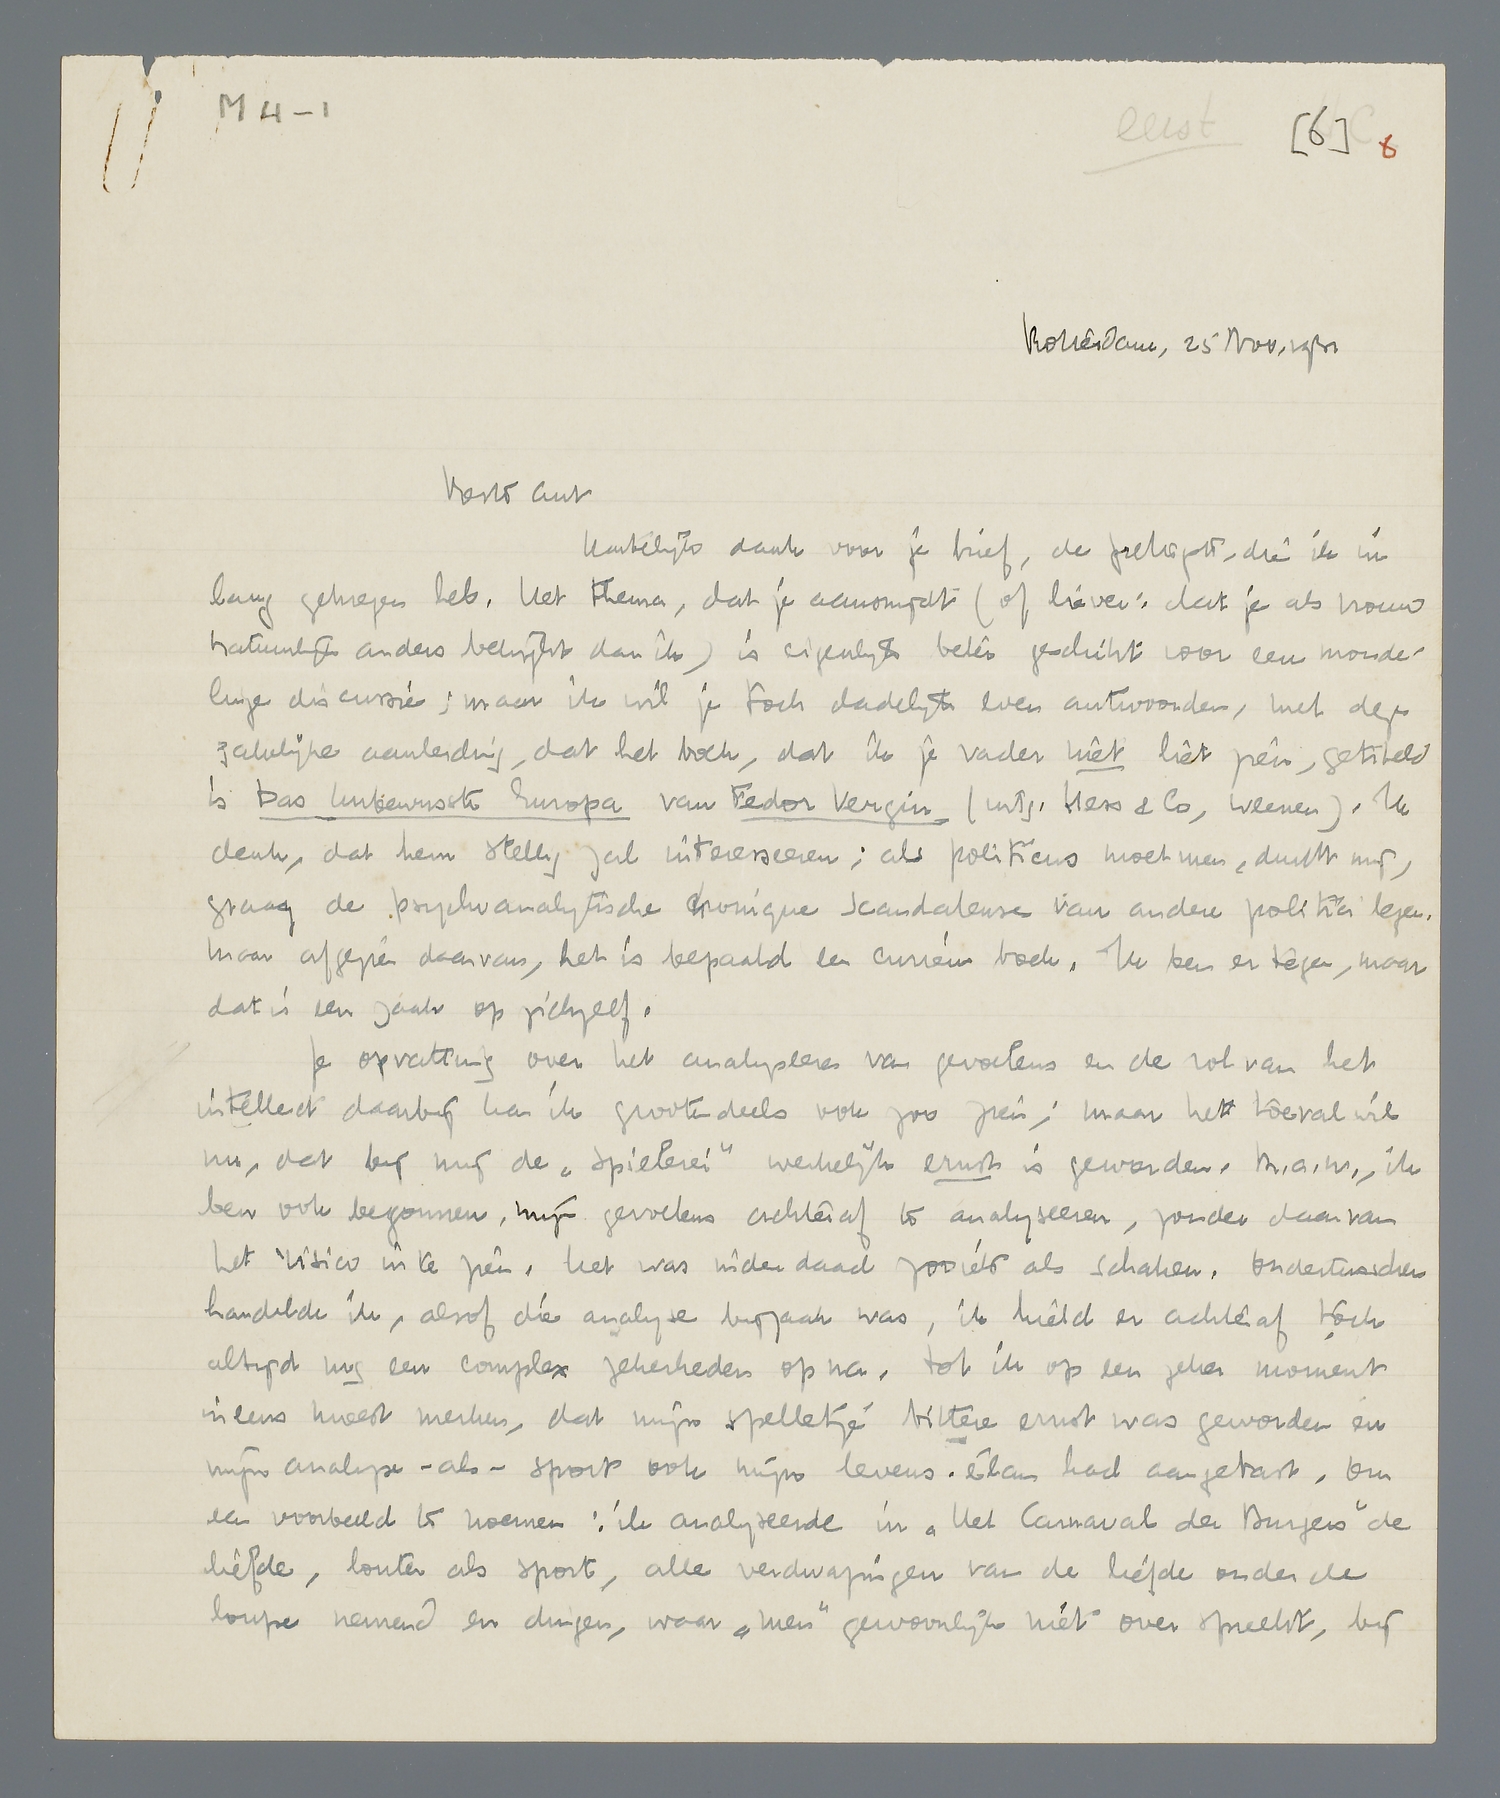 M 4-1
[6] 6
Rotterdam, 25 Nov. 1931
Beste Ant
Hartelijk dank voor je brief, de prettigste, die ik in
lang gekregen heb. Het thema, dat je aansnijdt (of liever: dat je als vrouw
natuurlijk anders belijdt dan ik) is eigenlijk beter geschikt voor een monde-
linge discussie; maar ik wil je toch dadelijk even antwoorden, met deze
zakelijke aanleiding, dat het boek, dat ik je vader niet liet zien, getiteld
is Das Unbewusste Europa van Fedor Vergin (uitg. Hess & Co, Weenen). Ik
denk, dat hem stellig zal interesseeren; als politicus moet men, dunkt mij,
graag de psychoanalytische chronique scandaleuse van andere politici lezen.
Maar afgezien daarvan, het is bepaald een curieus boek. Ik ben er tegen, maar
dat is een zaak op zichzelf.
Je opvatting over het analyseren van gevoelens en de rol van het
intellect daarbij kan ik grootendeels ook zoo zien; maar het toeval wil
nu, dat bij mij de „spielerei" werkelijk ernst is geworden. D.w.z., ik
ben ook begonnen, mijn gevoelens achteraf te analyseeren, zonder daarvan
het risico in te zien. Het was inderdaad zooiets als schaken. Ondertusschen
handelde ik, alsof die analyse bijzaak was, ik hield er achteraf toch
altijd nog een complex zekerheden op na. Tot ik op een zeker moment
ineens moest merken, dat mijn spelletje bittere ernst was geworden en
mijn analyse-als-sport ook mijn levens-élan had aangetast. Om
een voorbeeld te noemen: ik analyseerde in „Het Carnaval der Burgers" de
liefde, louter als sport, alle verdwazingen van de liefde onder de
loupe nemend en dingen, waar „men" gewoonlijk niet over spreekt, bij